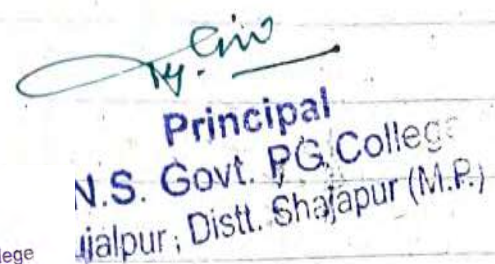 Principal
N.S. Govt. PG College
ujalpur, Distt. Shajapur (M.P.)
lege